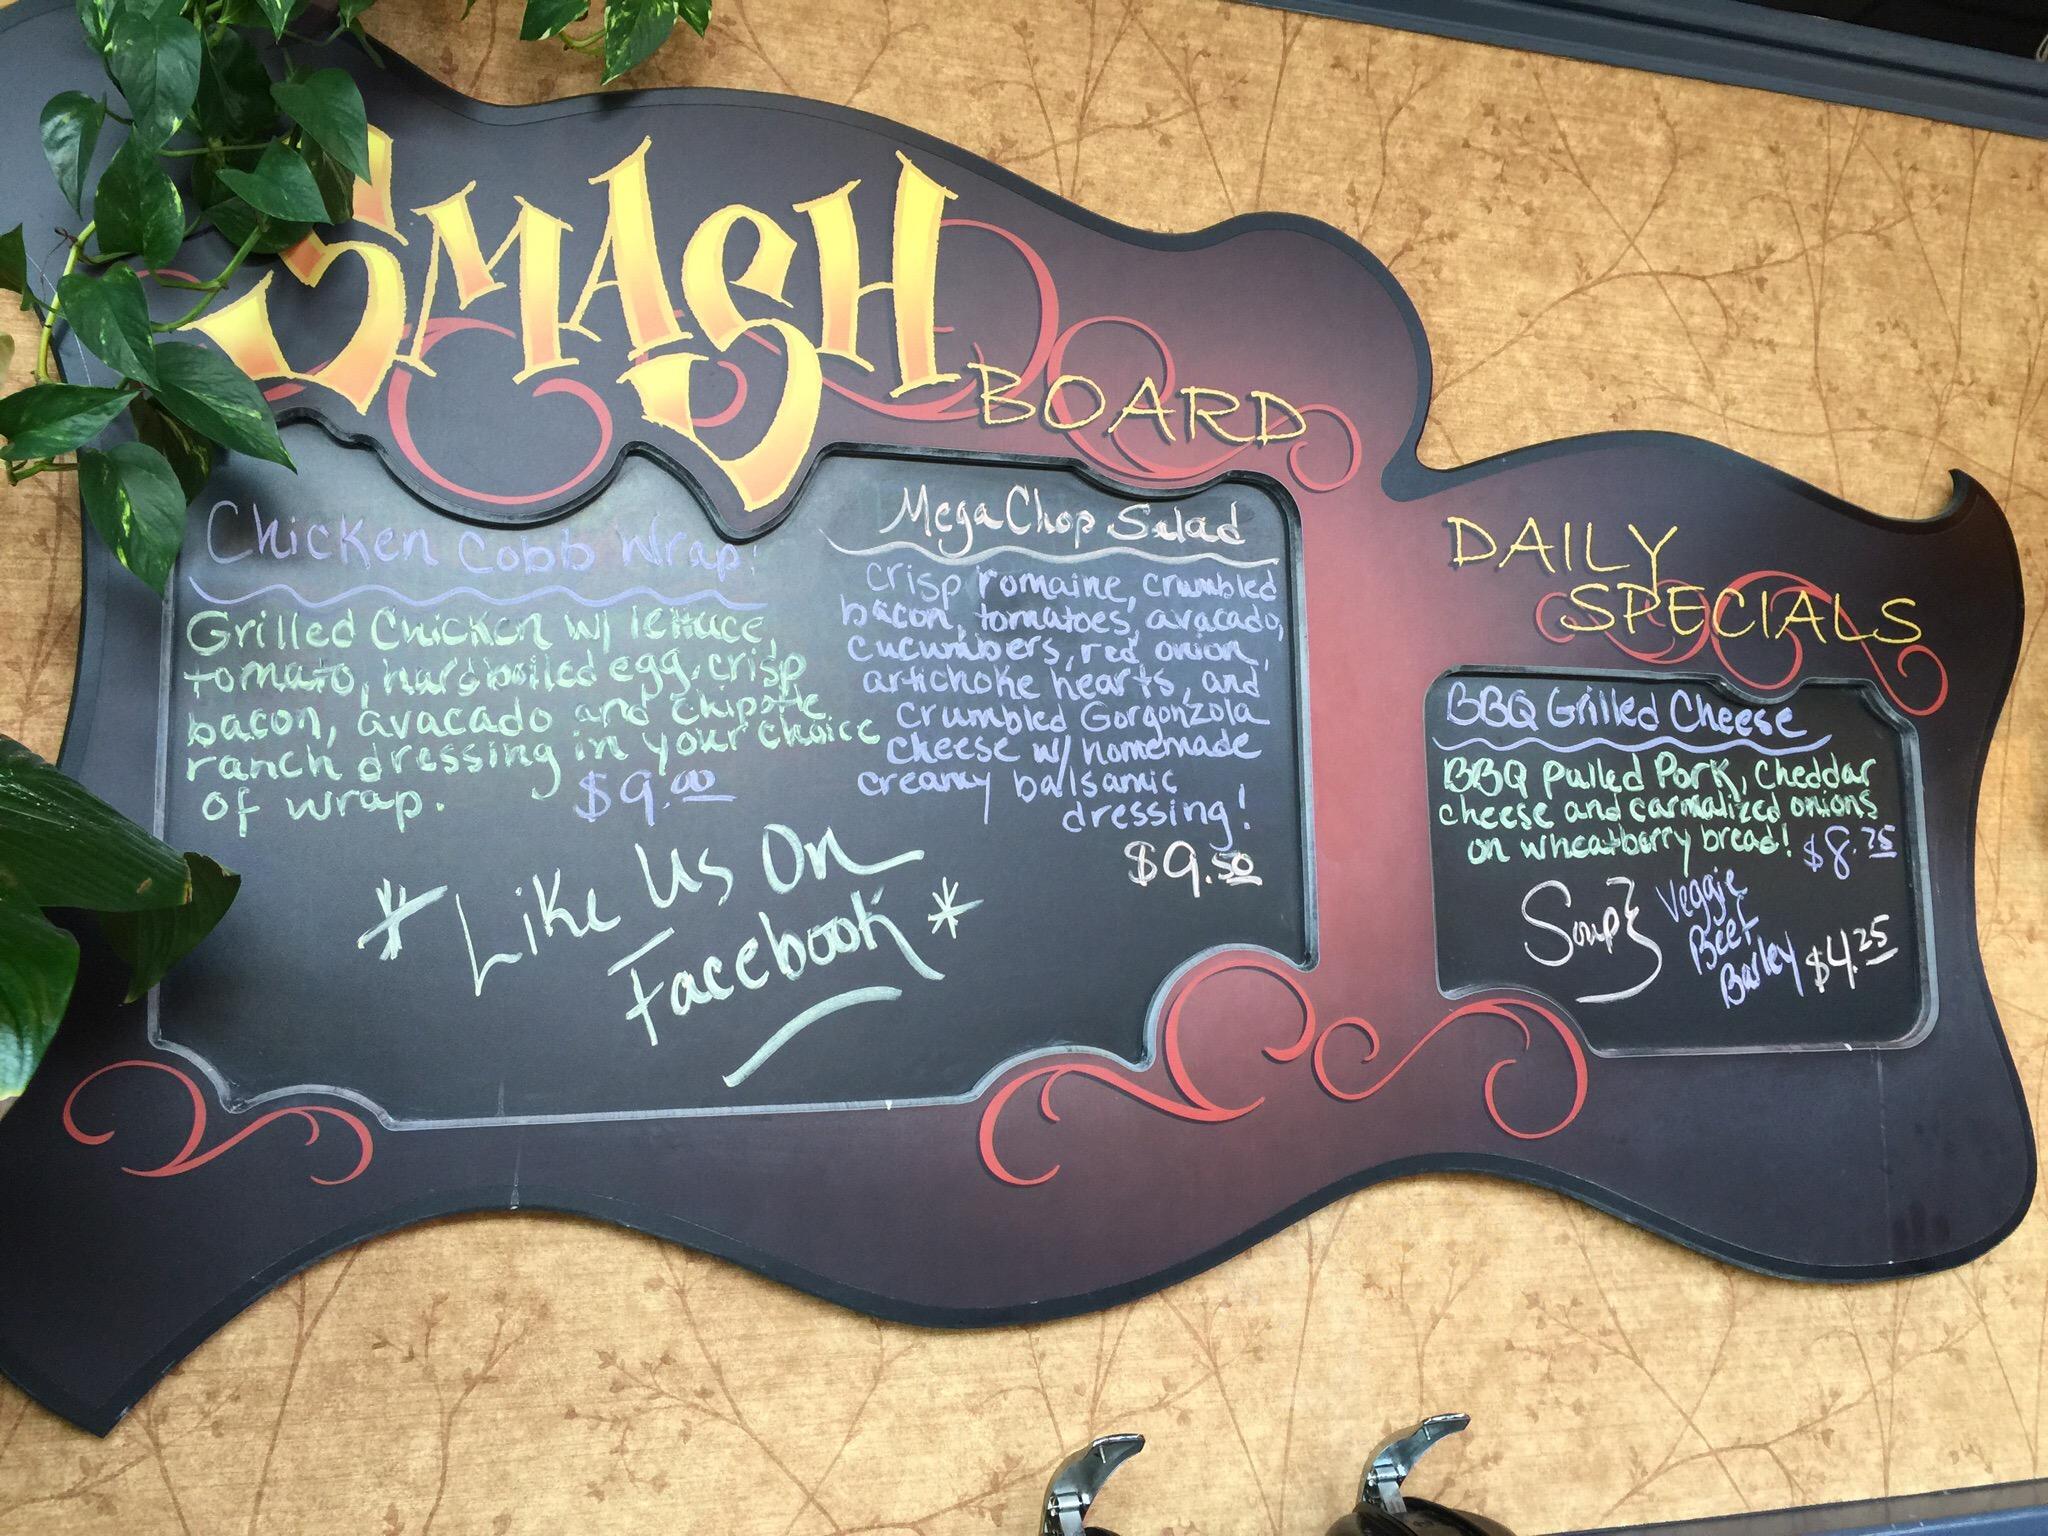 SMASH
BOARD
Chicken Cobb Wrap!
Grilled Chicken w/ lettuce,
tomato, hardboiled egg, crisp
bacon, avacado and chipotle
ranch dressing in your choice
of wrap. $9.00
Mega Chop Salad
crisp romaine, crumbled
bacon, tomatoes, avacado,
cucumbers, red onion,
artichoke hearts, and
crumbled Gorgonzola
cheese w/ homemade
creamy balsamic
dressing!
$9.50
*Like Us On
Facebook*
DAILY
SPECIALS
BBQ Grilled Cheese
BBQ Pulled Pork, Cheddar
cheese and carmalized onions
on wheatberry bread! $8.75
Soup} Veggie
Beef
Barley $4.25